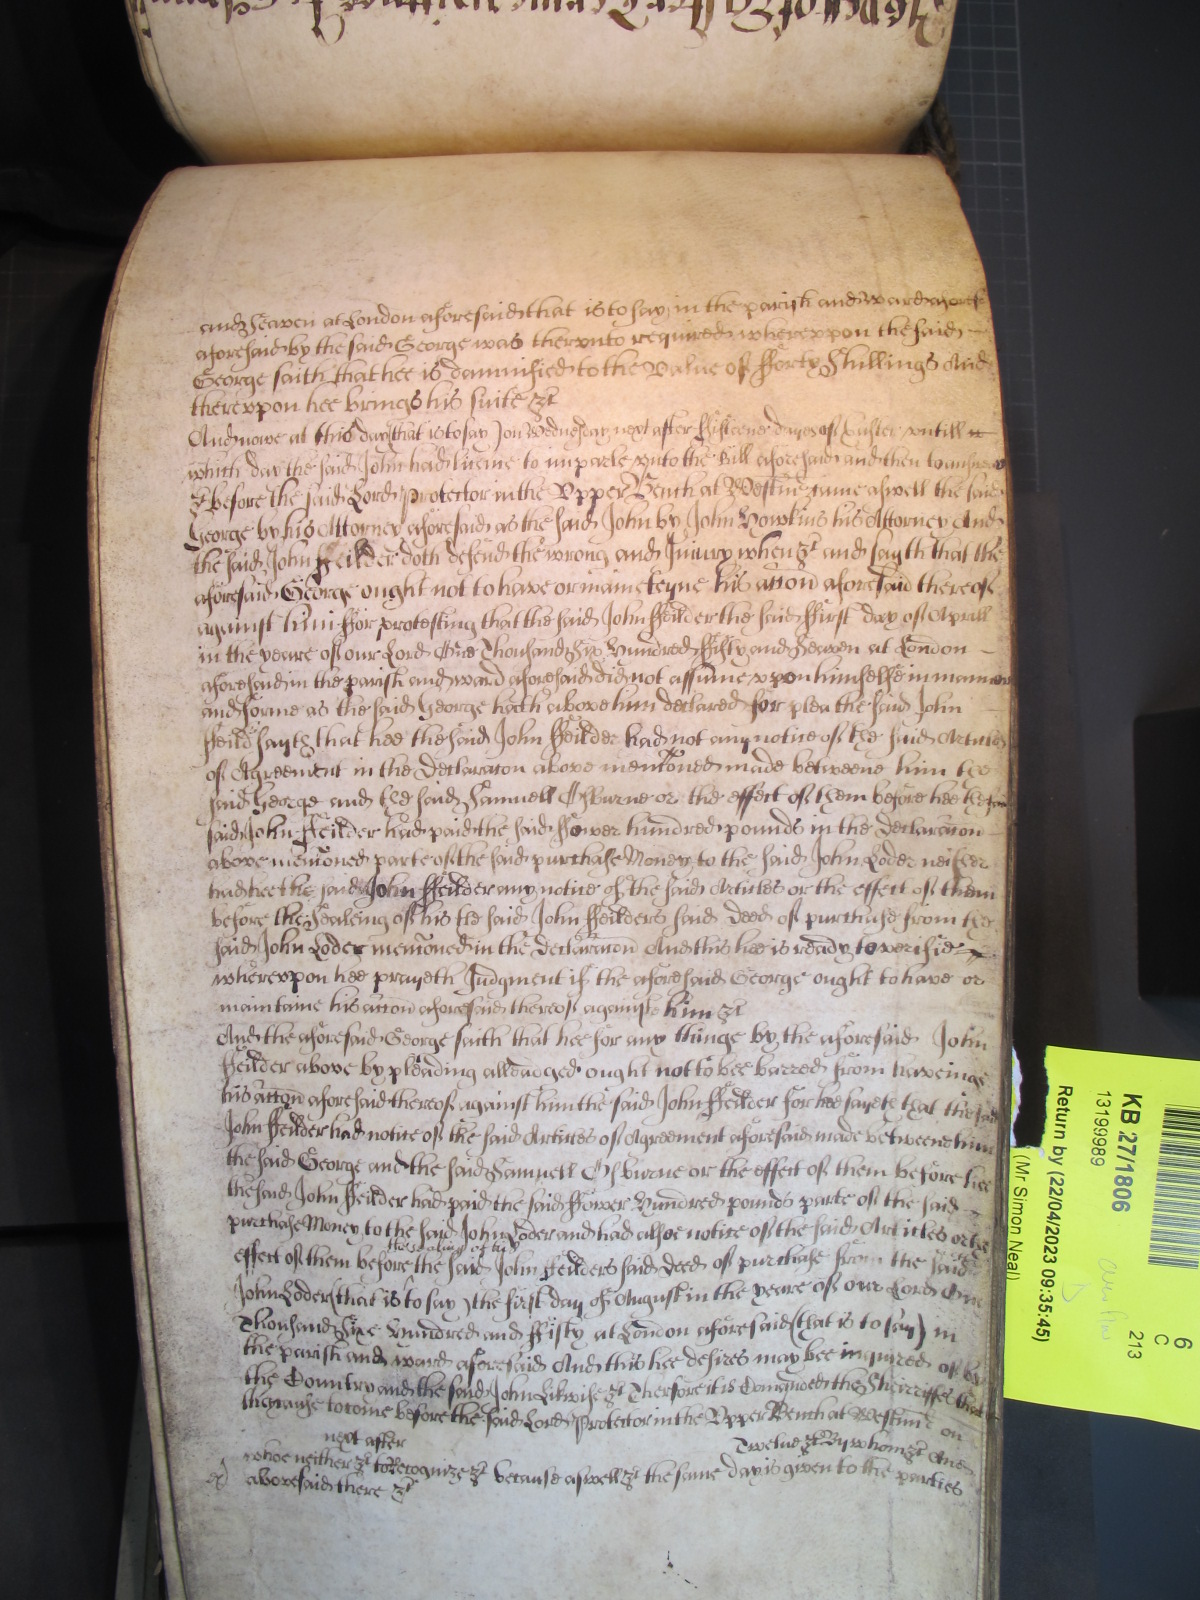 and Seaven at London aforesaid that is to say in the parish and ward aforesd
aforesaid by the said George was therevnto required wherevpon the said
George saith that hee is damnified to the value of fforty Shillings And
therevpon hee brings his suite &c
And nowe at this day that is to say on Wednesday next after fifteene dayes of Easter vntill
which day the said John had licence to imparle vnto the Bill aforesaid and then to answer
&c before the said Lord Protector in the Vpper Bench at Westm came aswell the said
George by his Attorney aforesaid as the said John by John Howkins his Attorney And
the said John ffeilder doth defend the wrong and Iniury when &c and sayth that the
aforesaid George ought not to have or mainteyne his accon aforesaid thereof
against him ffor protesting that the said John ffeilder the said ffirst day of Aprill
in the yeare of our Lord One Thousand Six Hundred ffifty and Seaven at London
aforesaid in the parish and ward aforesaid did not assume vpon himselfe in manner
and forme as the said George hath above him declared for plea the said John
ffeild sayth that hee the said John ffeilder had not any notice of the said Articles
of Agreement in the Declaracon above menconed made betweene him the
said George and the said Samuell Osburne or the effect of them before hee the
said John ffeilder had paid the said ffower hundred pounds in the Declaracon
above menconed parte of the said purchase Money to the said John Loder neither
had hee the said John ffeilder any notice of the said Articles or the effect of them
before the Sealeing of his the said John ffeilders said Deed of purchase from the
said John Loder menconed in the Declaracon And this hee is ready to verifie
wherevpon hee prayeth Judgment if the aforesaid George ought to have or
maintaine his accon aforesaid thereof against him &c
And the aforesaid George saith that hee for any thinge by the aforesaid John
ffeilder above by pleading alleadged ought not to bee barred from haveinge
his accon aforesaid thereof against him the said John ffeilder for hee sayeth that the said
John ffeilder had notice of the said Articles of Agreement aforesaid made betweene him
the said George and the said Samuell Osburne or the effect of them before hee
the said John ffeilder had paid the said ffower Hundred pounds parte of the said
purchase Money to the said John Loder and had alsoe notice of the said Articles or the
the sealing of his
effect of them before the said John ffeilders said Deed of purchase from the said
John Loder (that is to say) the first day of August in the yeare of our Lord One
Thousand Sixe Hundred and ffifty at London aforesaid (that is to say) in
the parish and ward aforesaid And this hee desires may bee inquired of by
the Country and the said John Likwise &c Therfore it is Comanded the Sheirriffes that
they cause to come before the said Lord Protector in the Vpper Bench at Westm on
next after
Twelve &c By whom &c And
whoe neither &c to Recognize &c because aswell &c the same day is given to the parties
abovesaid there &c
KB 27/1806
13199989
Return by (22/04/2023 09:35:45)
(Mr Simon Neal)
6
C
213